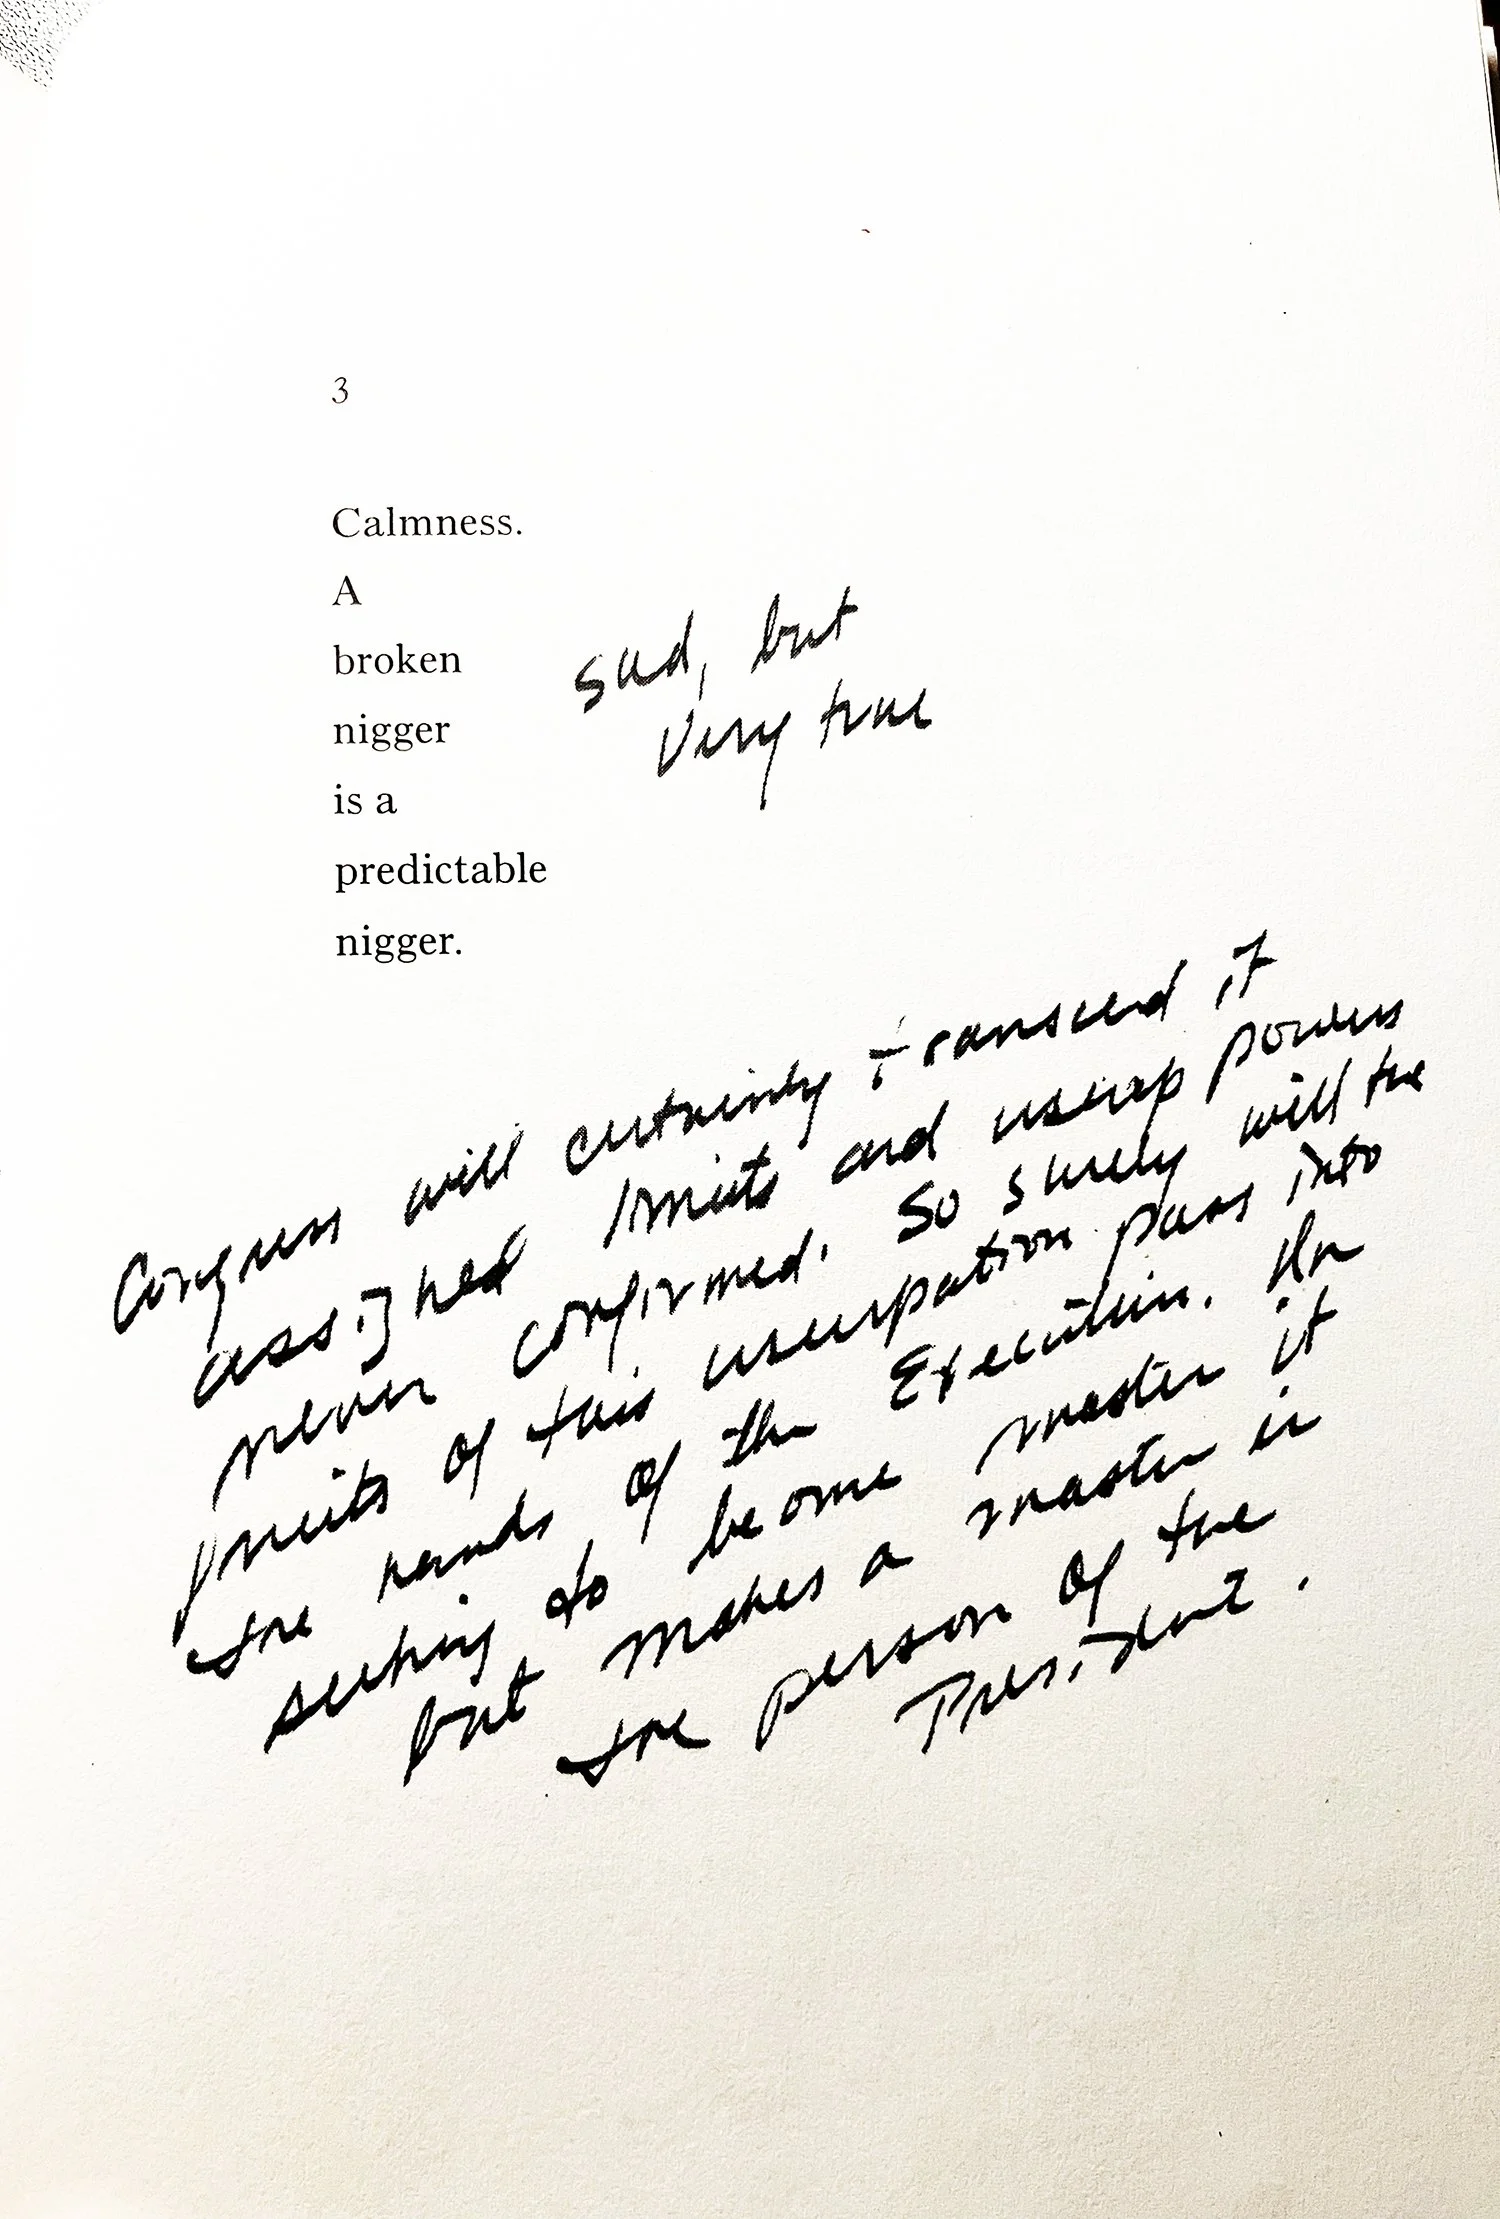 3
Calmness.
A
broken
nigger
is a
predictable
nigger.
sad, but
very true
Congress will certainly transcend it
assigned limits and usurp powers
never confirmed. So surely will the
fruits of this usurpation pass into
the hands of the Executive. In
seeking to become master it
but makes a master in
the person of the
President.